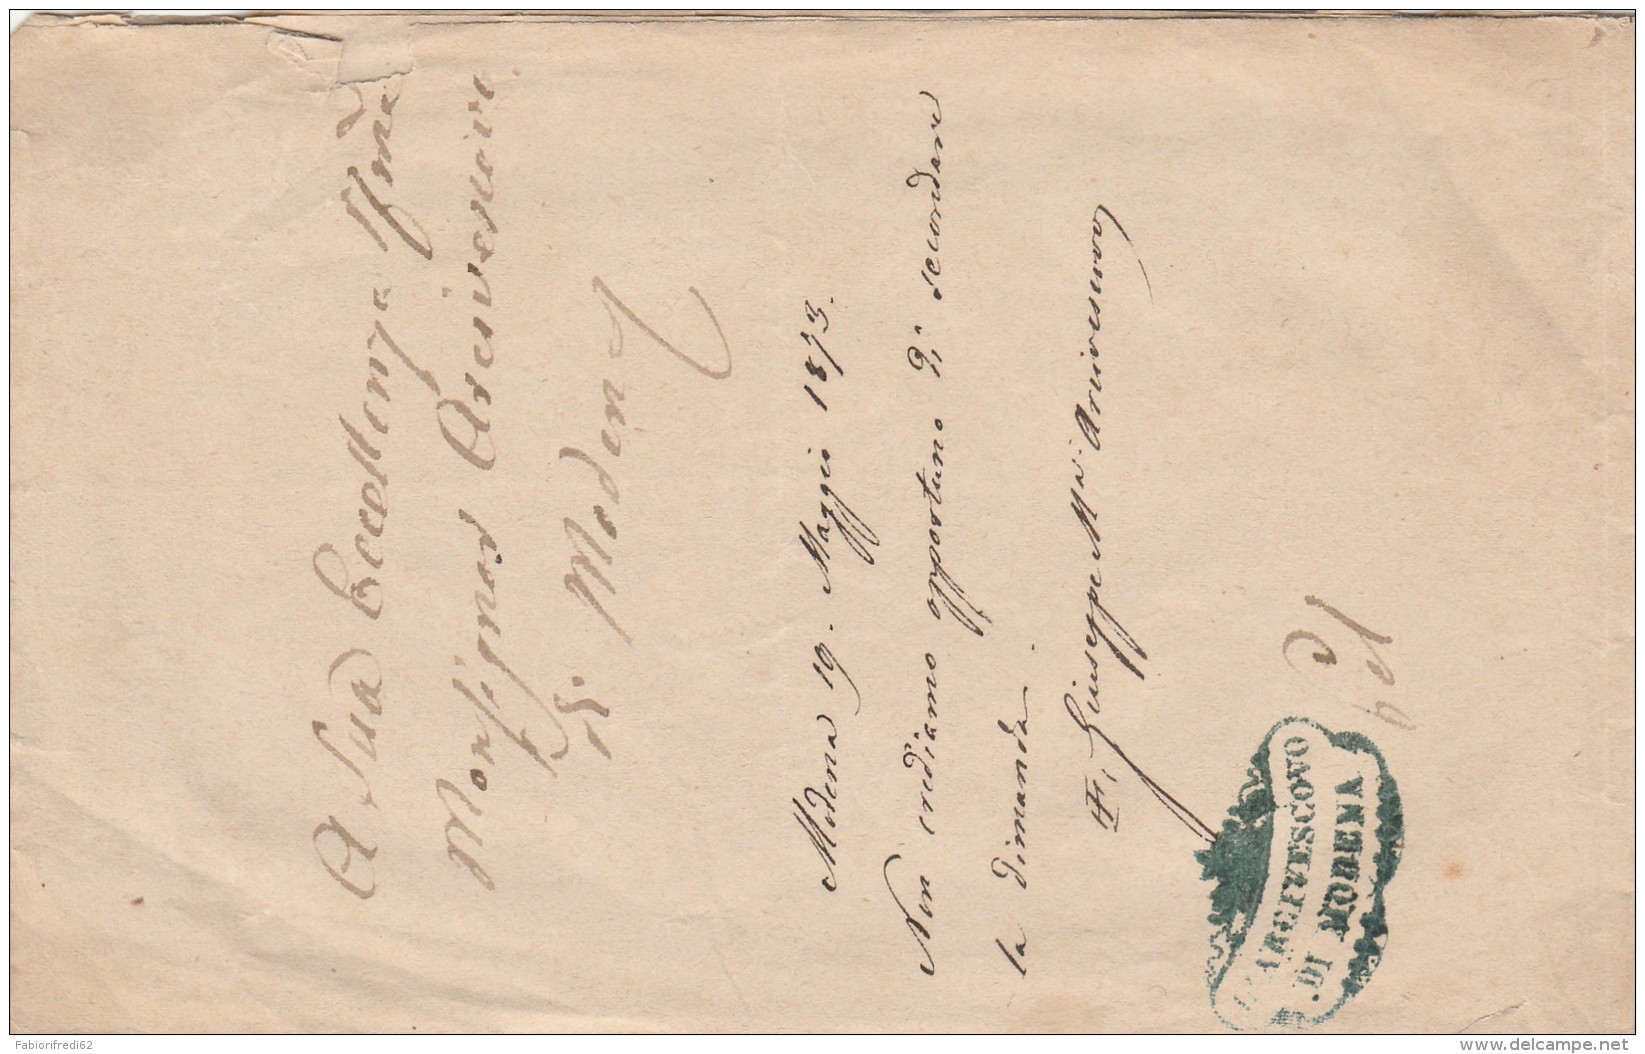 A Sua Eccellenza Ill͞ma
Monsignor Arcivescovo
di Modena
Modena 19. Maggio 1873.
Non crediamo opportuno di secondare
la dimanda.
+ F. Giuseppe M.ª Arcivescovo
L'ARCIVESCOVO
DI MODENA
Fabiorifredi62
www.delcampe.net